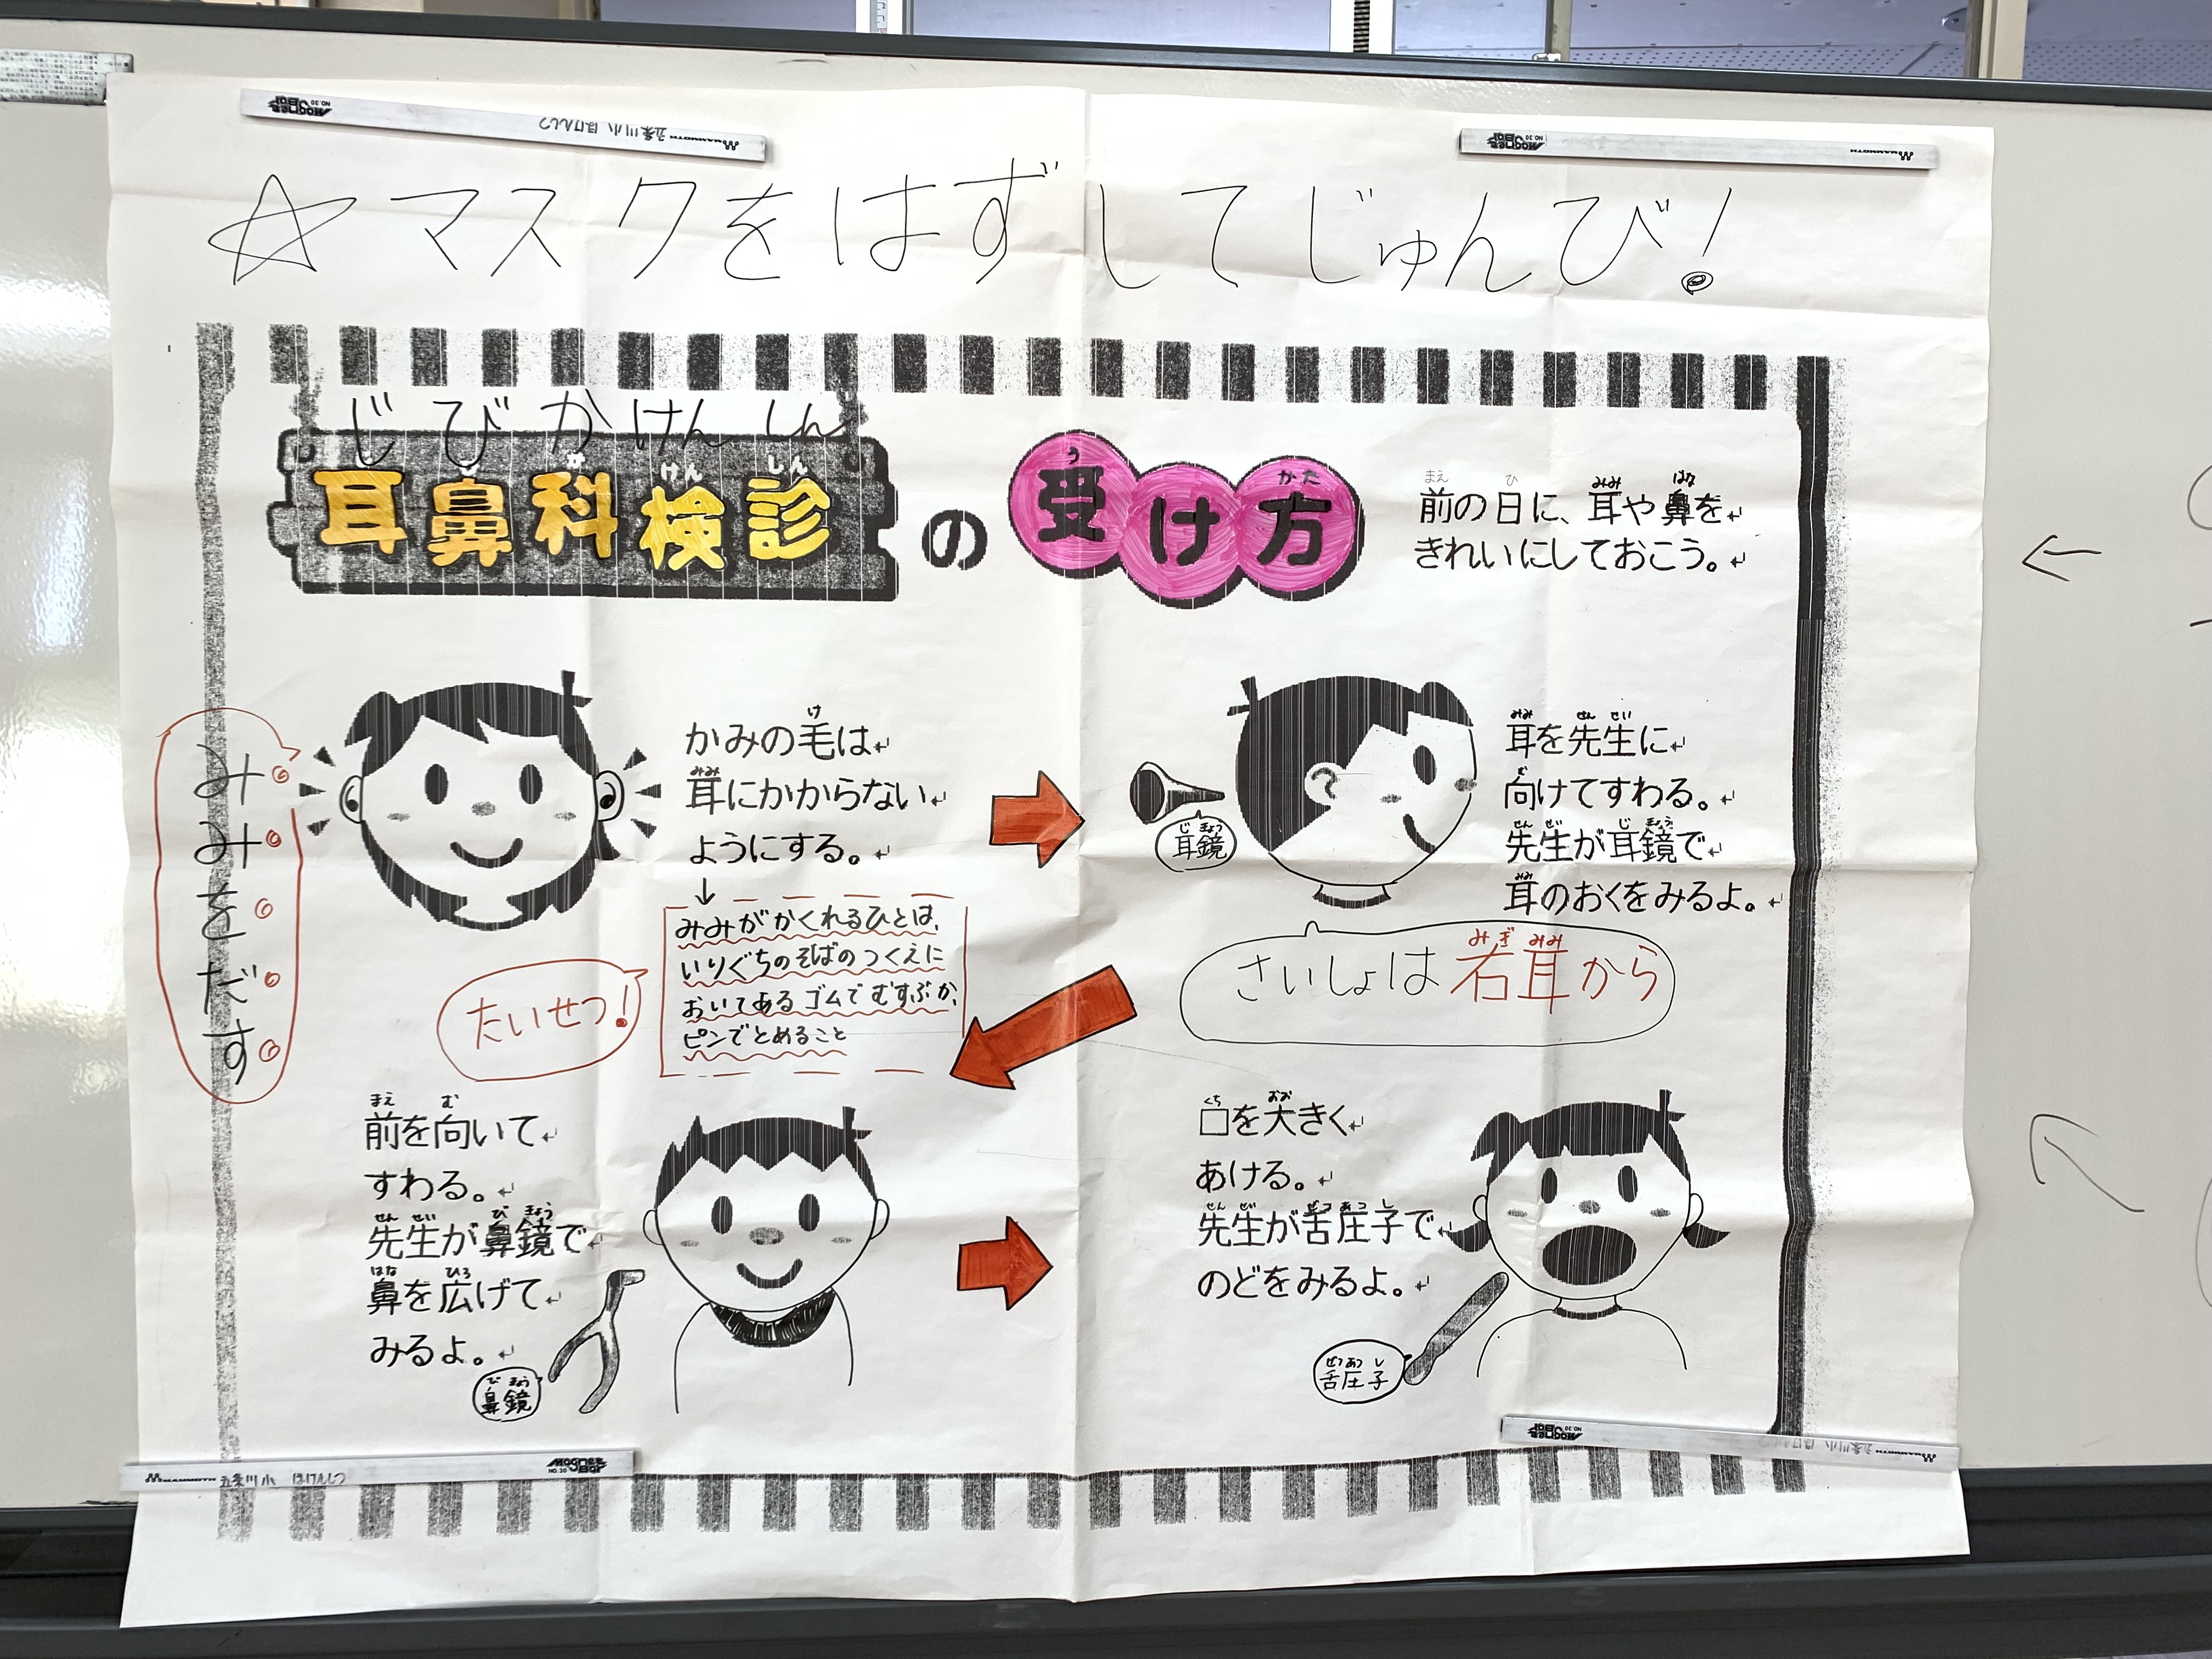 ☆マスクをはずしてじゅんび!
じびかけんしん
耳鼻科検診の受け方
前の日に、耳や鼻を
きれいにしておこう。
みみをだす
かみの毛は
耳にかからない
ようにする。
↓
みみがかくれるひとは、
いりぐちのそばのつくえに
おいてあるゴムでむすぶか、
ピンでとめること
たいせつ!
耳を先生に
向けてすわる。
先生が耳鏡で
耳のおくをみるよ。
耳鏡
さいしょは右耳から
前を向いて
すわる。
先生が鼻鏡で
鼻を広げて
みるよ。
鼻鏡
口を大きく
あける。
先生が舌圧子で
のどをみるよ。
舌圧子
MAMMOTH 五条川小 ほけんしつ Magnet Bar NO.30